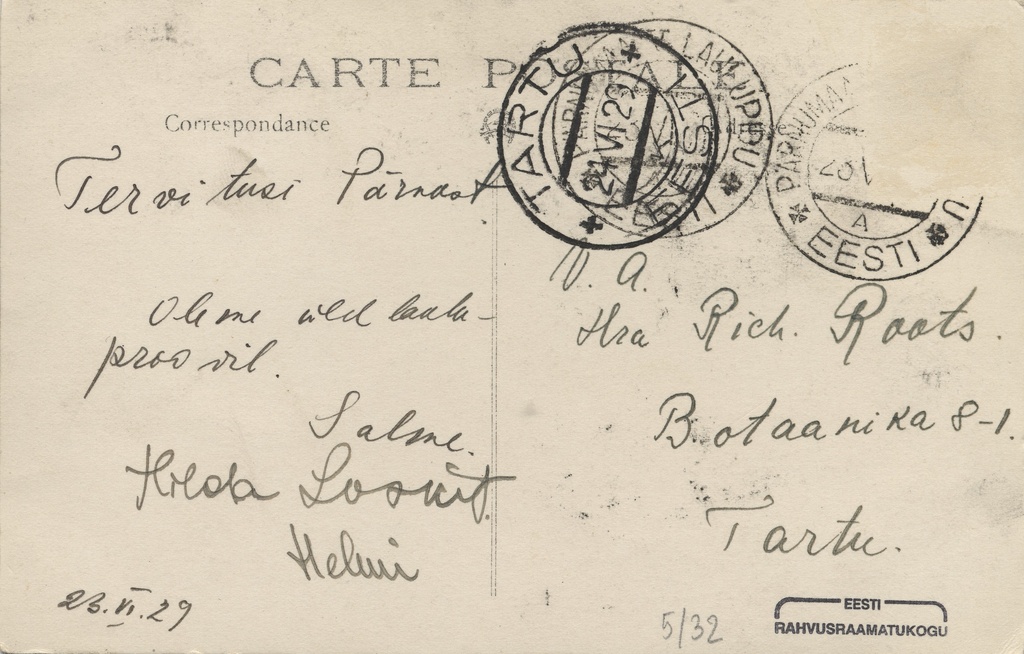 CARTE POSTALE
Correspondance
Tervitusi Pärnust
Oleme üld laulu-
proovil.
Salme.
Hilda Loskit.
Helmi
23.VI.29
TARTU
24 VI 29
EESTI
LAULUPIDU
PÄRNUMAA
A
EESTI
V. A.
Hra Rich. Roots.
Botaanika 8-1.
Tartu.
5/32
EESTI
RAHVUSRAAMATUKOGU